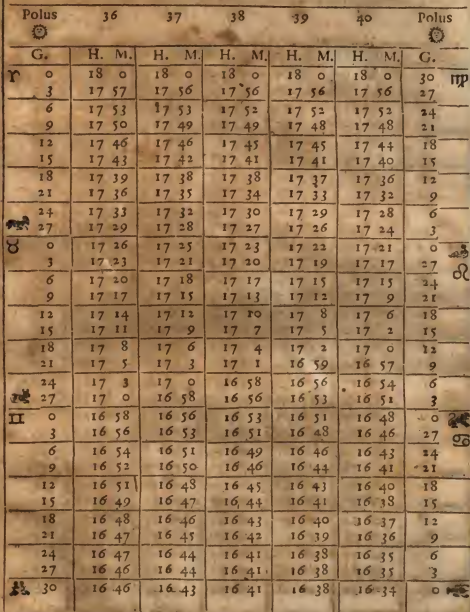 Polus 36 37 38 39 40 Polus
☉ ☉
G. H. M. H. M. H. M. H. M. H. M. G.
♈ 0 18 0 18 0 18 0 18 0 18 0 30 ♍
3 17 57 17 56 17 56 17 56 17 56 27
6 17 53 17 53 17 52 17 52 17 52 24
9 17 50 17 49 17 49 17 48 17 48 21
12 17 46 17 46 17 45 17 45 17 44 18
15 17 43 17 42 17 41 17 41 17 40 15
18 17 39 17 38 17 38 17 37 17 36 12
21 17 36 17 35 17 34 17 33 17 32 9
24 17 33 17 32 17 30 17 29 17 28 6
27 17 29 17 28 17 27 17 26 17 24 3
♉ 0 17 26 17 25 17 23 17 22 17 21 0
3 17 23 17 21 17 20 17 19 17 17 27 ♌
6 17 20 17 18 17 17 17 15 17 15 24
9 17 17 17 15 17 13 17 12 17 9 21
12 17 14 17 12 17 10 17 8 17 6 18
15 17 11 17 9 17 7 17 5 17 2 15
18 17 8 17 6 17 4 17 2 17 0 12
21 17 5 17 3 17 1 16 59 16 57 9
24 17 3 17 0 16 58 16 56 16 54 6
27 17 0 16 58 16 56 16 53 16 51 3
♊ 0 16 58 16 56 16 53 16 51 16 48 0
3 16 56 16 53 16 51 16 48 16 46 27 ♋
6 16 54 16 51 16 49 16 46 16 43 24
9 16 52 16 50 16 46 16 44 16 41 21
12 16 51 16 48 16 45 16 43 16 40 18
15 16 49 16 47 16 44 16 41 16 38 15
18 16 48 16 46 16 43 16 40 16 37 12
21 16 47 16 45 16 42 16 39 16 36 9
24 16 47 16 44 16 41 16 38 16 35 6
27 16 46 16 44 16 41 16 38 16 35 3
30 16 46 16 43 16 41 16 38 16 34 0